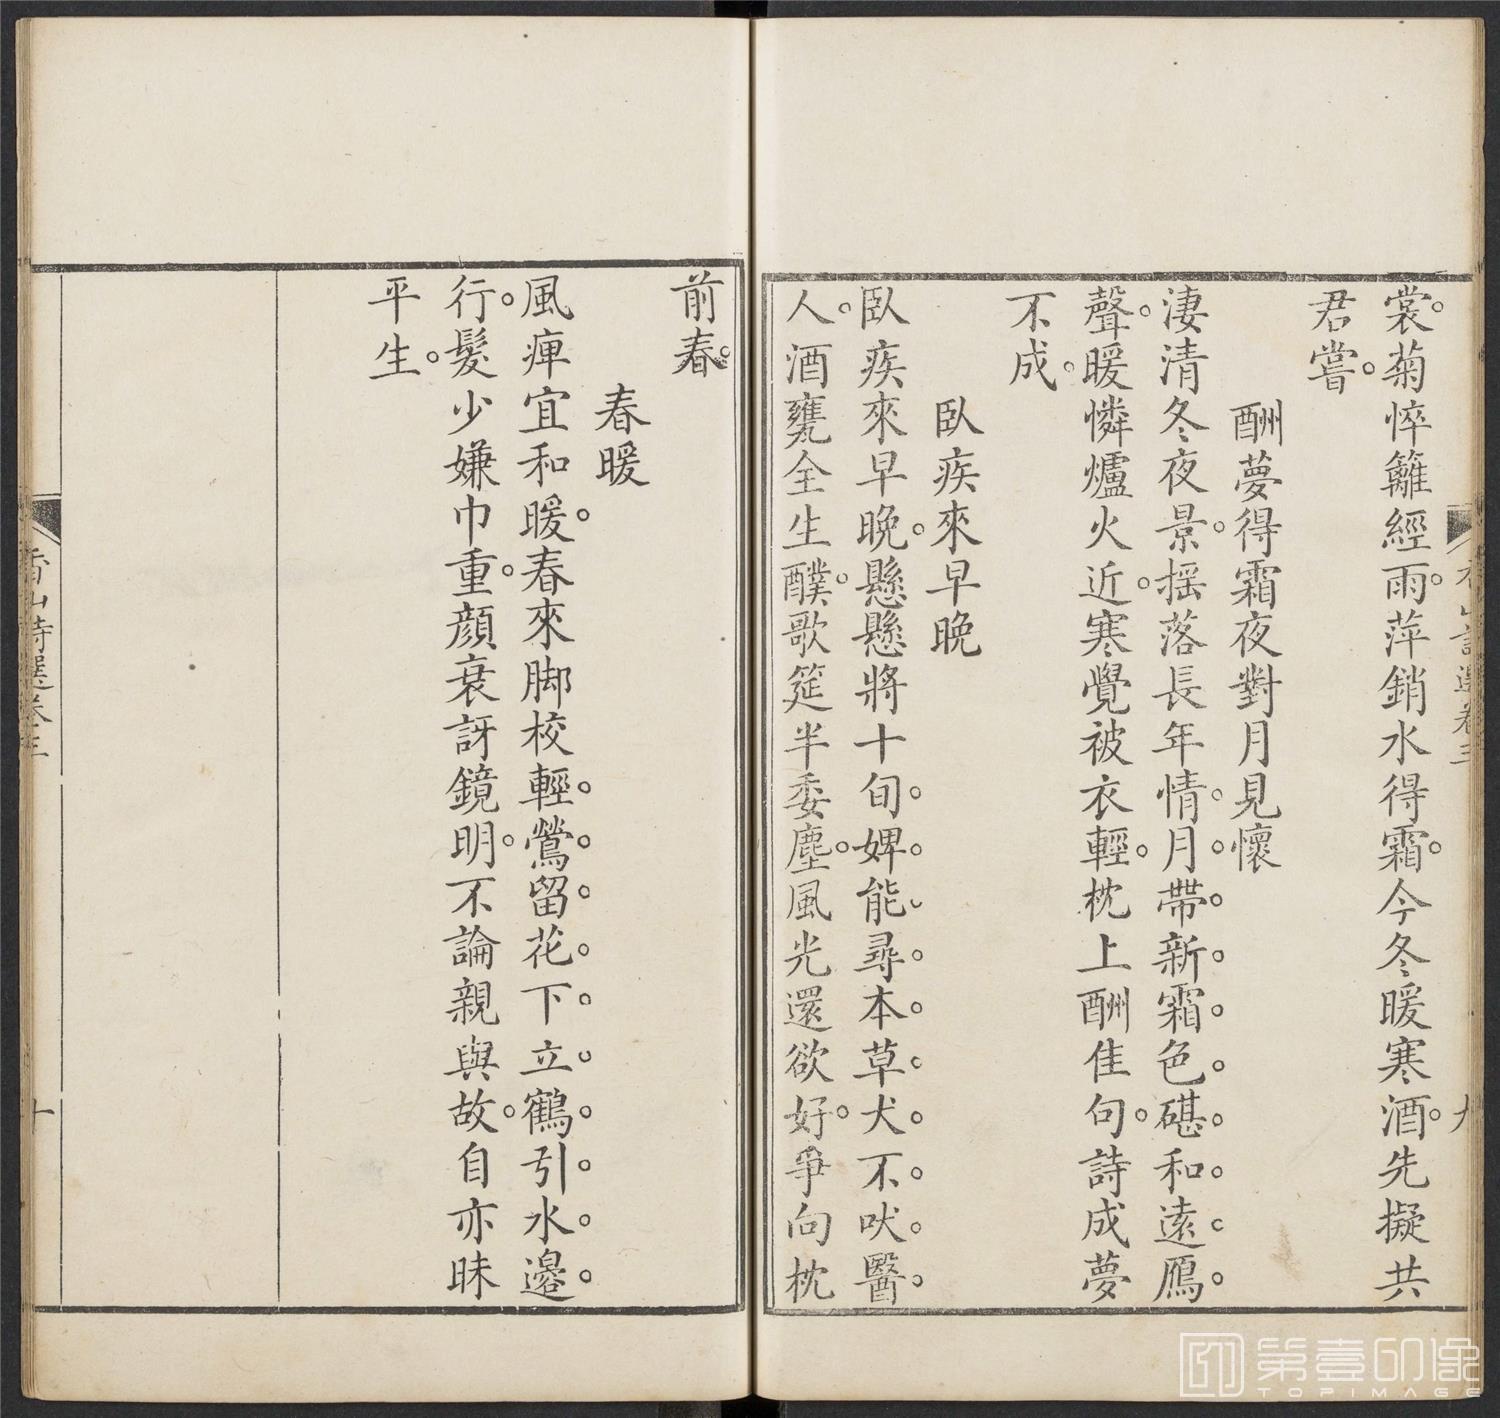 裳。菊悴籬經雨。萍銷水得霜。今冬暖寒酒。先擬共
君嘗。
酬夢得霜夜對月見懷
淒清冬夜景。搖落長年情。月帶新霜色。碪和遠鴈
聲。暖憐爐火近。寒覺被衣輕。枕上酬佳句。詩成夢
不成。
臥疾來早晚
臥疾來早晚。懸懸將十旬。婢能尋本草。犬不吠醫
人。酒甕全生醭。歌筵半委塵。風光還欲好。爭向枕
前春。
春暖
風痺宜和暖。春來脚校輕。鶯留花下立。鶴引水邊
行。髮少嫌巾重。顏衰訝鏡明。不論親與故。自亦昧
平生。
香山詩選卷三
十
九
第壹印像
TOPIMAGE